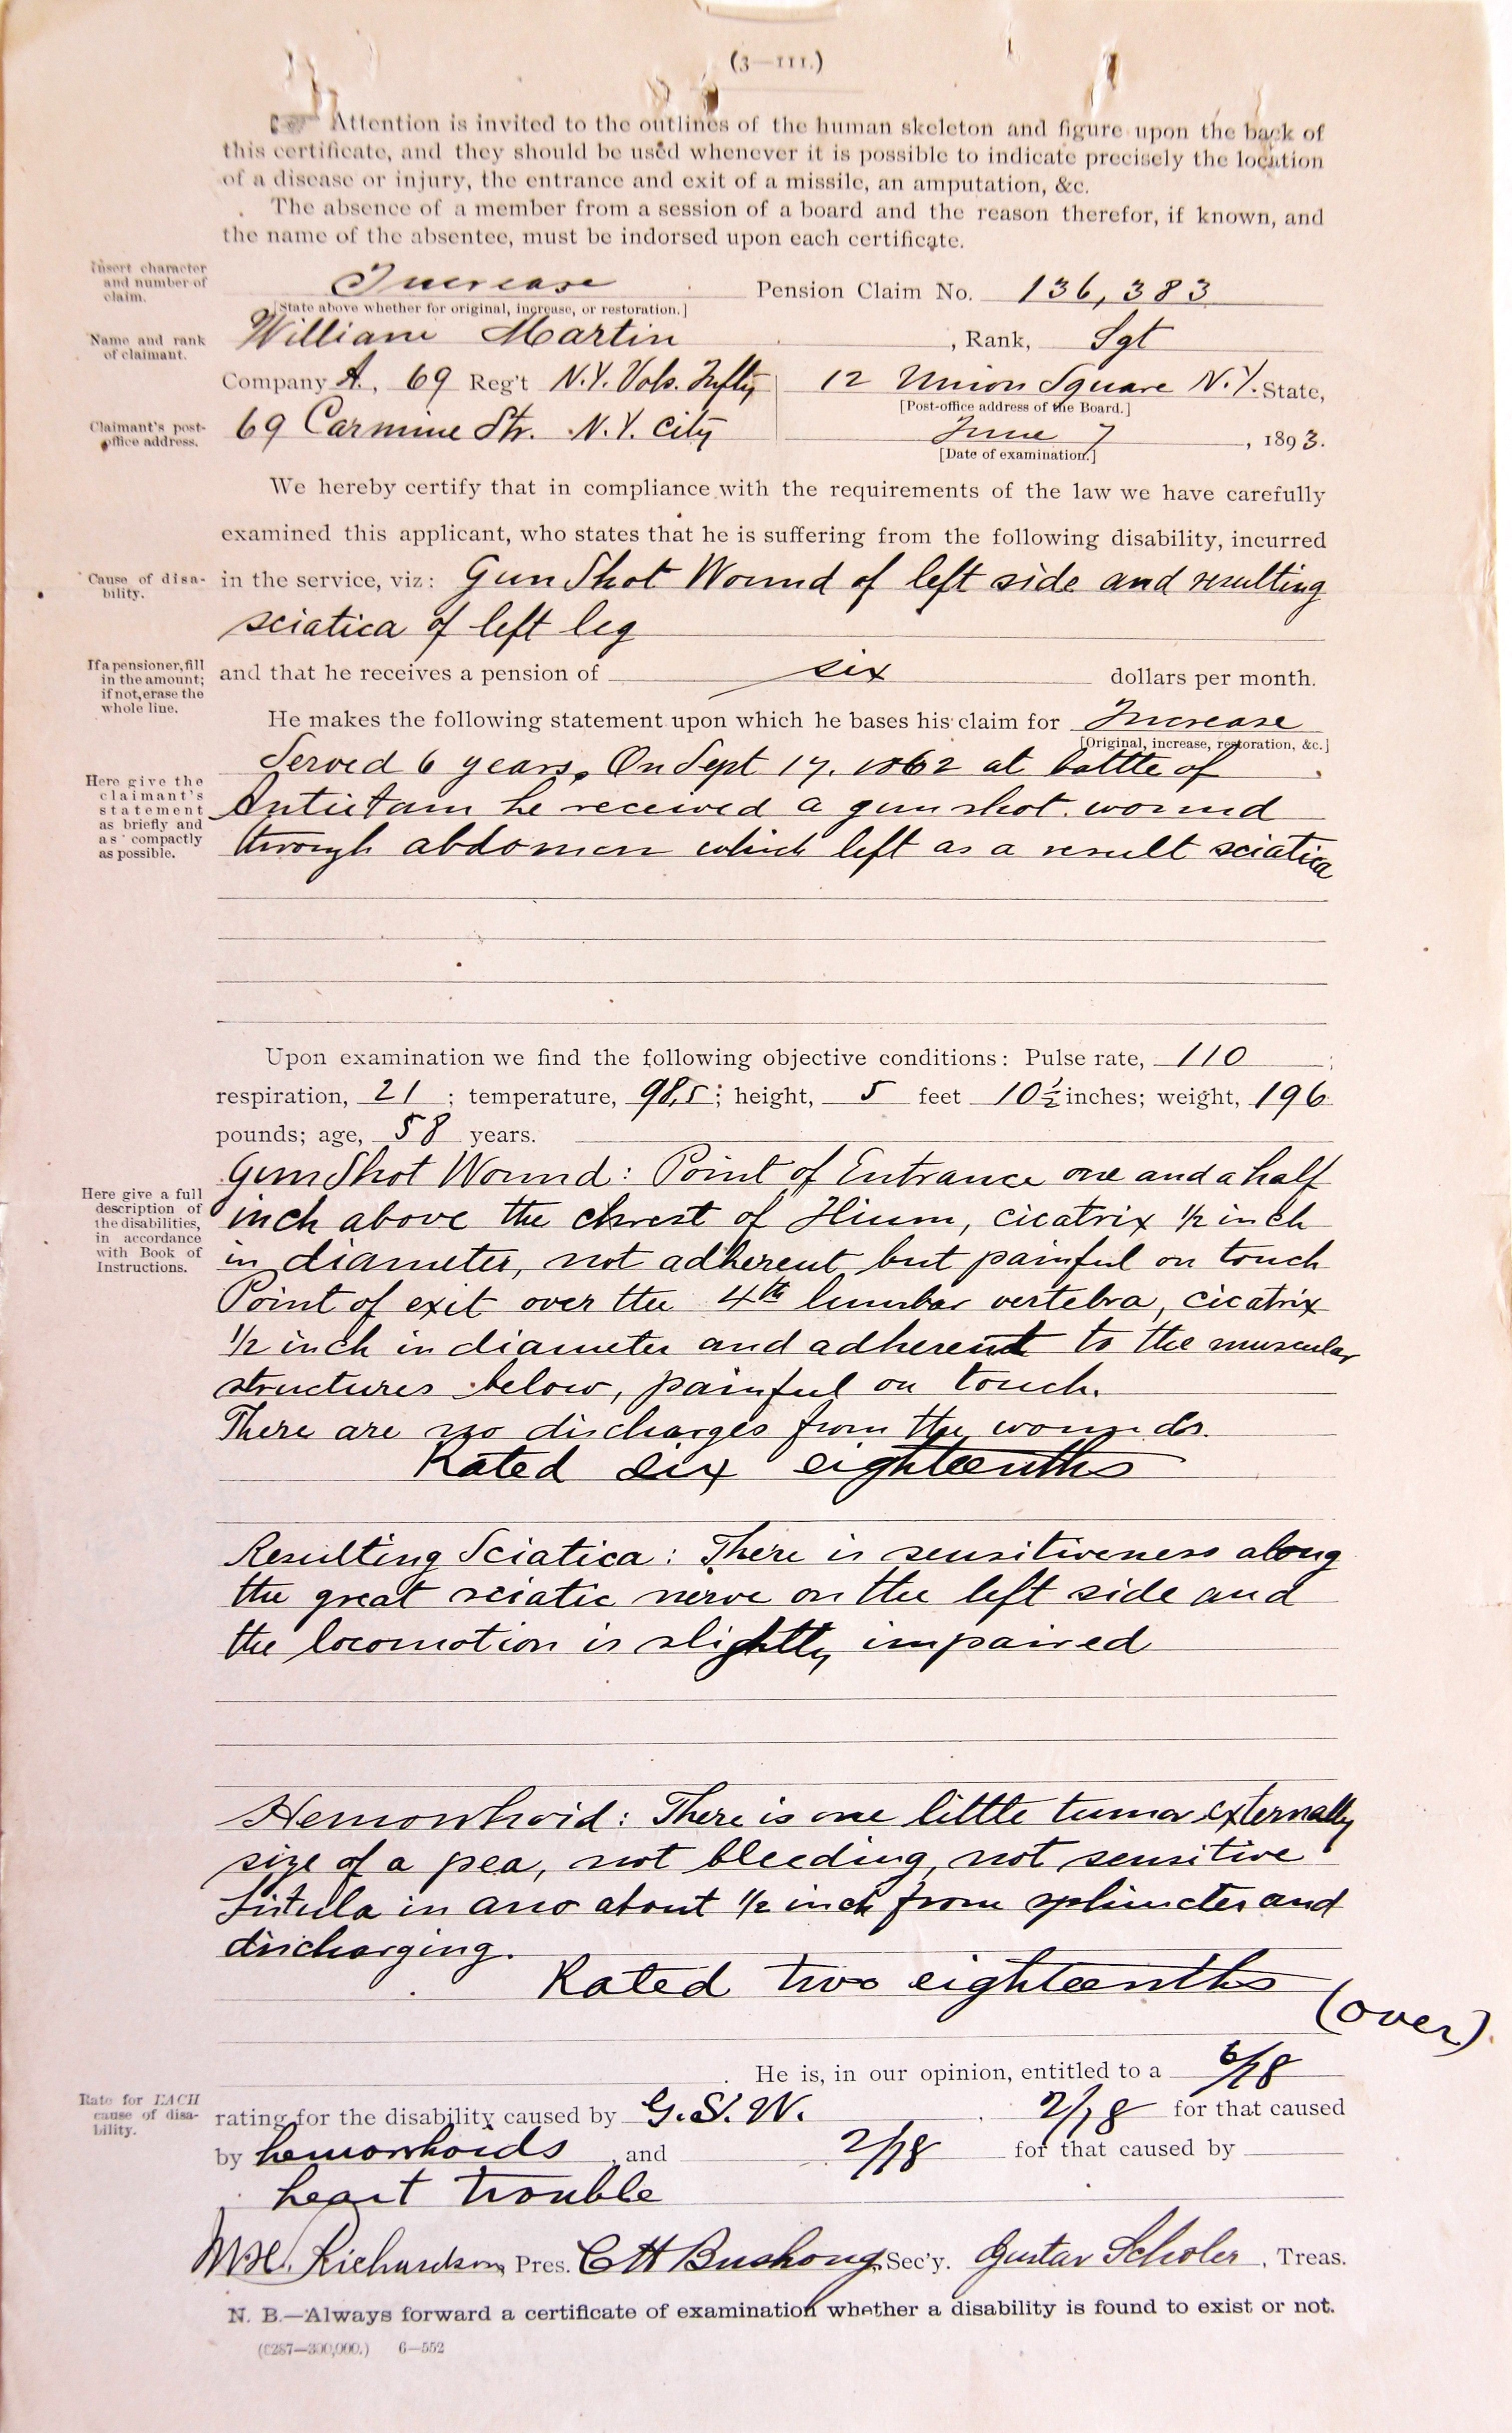 (3—111.)
☞ Attention is invited to the outlines of the human skeleton and figure upon the back of
this certificate, and they should be used whenever it is possible to indicate precisely the location
of a disease or injury, the entrance and exit of a missile, an amputation, &c.
The absence of a member from a session of a board and the reason therefor, if known, and
the name of the absentee, must be indorsed upon each certificate.
Insert character
and number of
claim.
Increase Pension Claim No. 136,383
[State above whether for original, increase, or restoration.]
Name and rank
of claimant.
William Martin , Rank, Sgt
Company A., 69 Reg't N.Y. Vols. Infty 12 Union Square N.Y. State,
[Post-office address of the Board.]
Claimant's post-
office address.
69 Carmine Str. N.Y. City June 7 , 1893.
[Date of examination.]
We hereby certify that in compliance with the requirements of the law we have carefully
examined this applicant, who states that he is suffering from the following disability, incurred
Cause of disa-
bility.
in the service, viz: Gun Shot Wound of left side and resulting
sciatica of left leg
If a pensioner, fill
in the amount;
if not, erase the
whole line.
and that he receives a pension of six dollars per month.
He makes the following statement upon which he bases his claim for Increase
[Original, increase, restoration, &c.]
Here give the
claimant's
statement
as briefly and
as compactly
as possible.
Served 6 years. On Sept 17. 1862 at battle of
Antietam he received a gun shot wound
through abdomen which left as a result sciatica
Upon examination we find the following objective conditions: Pulse rate, 110 ;
respiration, 21 ; temperature, 98,5; height, 5 feet 10½ inches; weight, 196
pounds; age, 58 years.
Here give a full
description of
the disabilities,
in accordance
with Book of
Instructions.
Gun Shot Wound: Point of Entrance one and a half
inch above the chrest of Ilium, cicatrix 1/2 inch
in diameter, not adherent but painful on touch
Point of exit over the 4th lumbar vertebra, cicatrix
1/2 inch in diameter and adherent to the muscular
structures below, painful on touch.
There are no discharges from the wounds.
Rated six eighteenths
Resulting Sciatica: There is sensitiveness along
the great sciatic nerve on the left side and
the locomotion is slightly impaired
Hemorrhoid: There is one little tumor externally
size of a pea, not bleeding, not sensitive
fistula in ano about 1/2 inch from sphincter and
discharging.
Rated two eighteenths
(over)
He is, in our opinion, entitled to a 6/18
Rate for EACH
cause of disa-
bility.
rating for the disability caused by G.S.W. 2/18 for that caused
by hemorrhoids , and 2/18 for that caused by
heart trouble
W.H. Richardson, Pres. C H Bushong, Sec'y. Gustav Scholer, Treas.
N. B.—Always forward a certificate of examination whether a disability is found to exist or not.
(6287—300,000.) 6—552